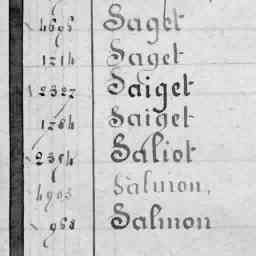 4696 Saget
1214 Saget
2327 Saiget
1284 Saiget
2304 Saliot
4903 Salmon,
968 Salmon